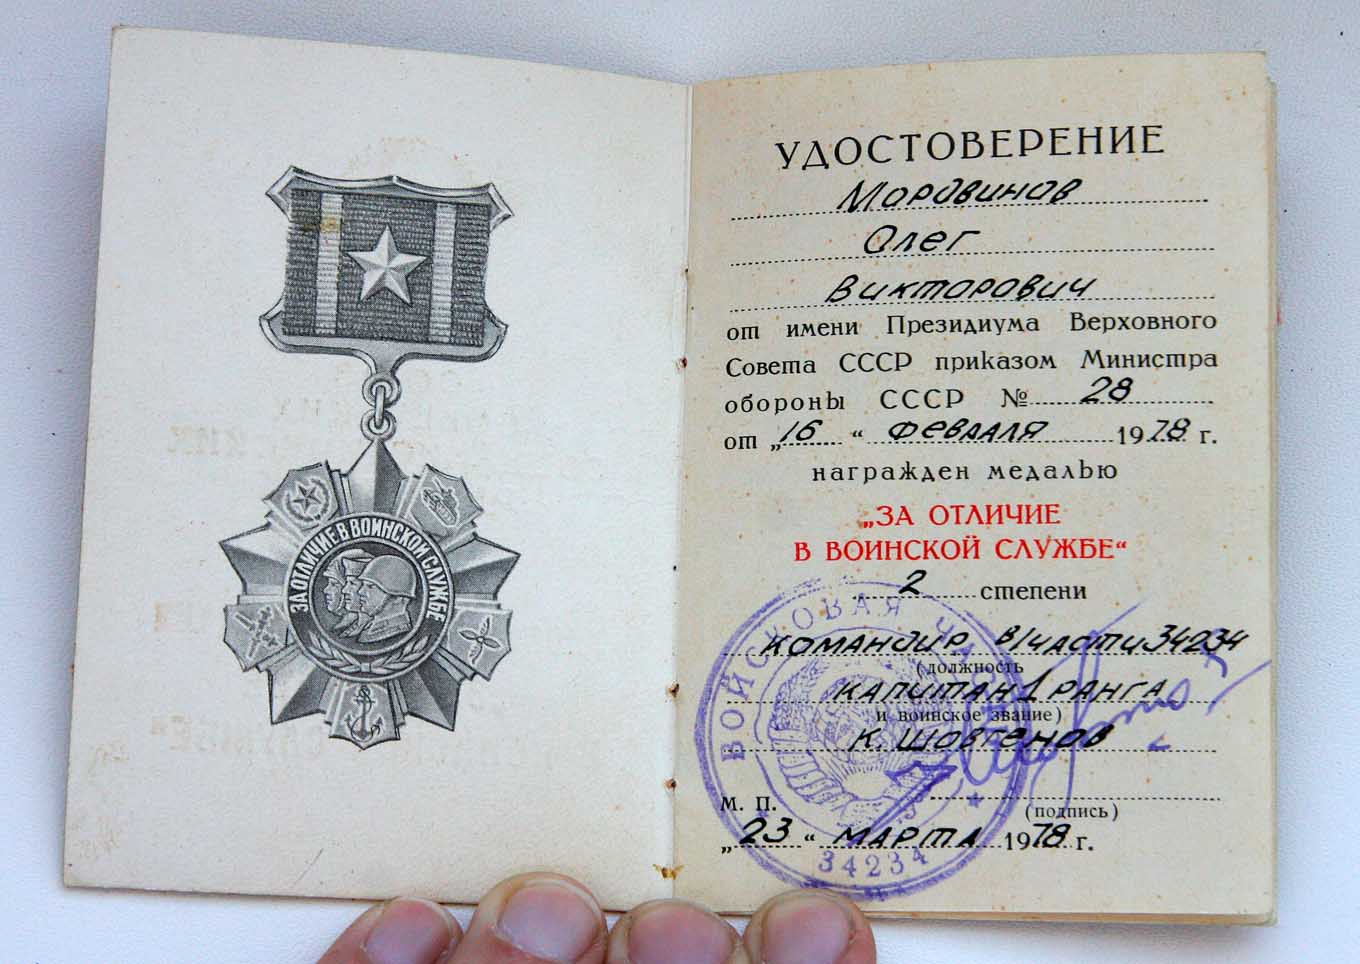 ЗА ОТЛИЧИЕ В ВОИНСКОЙ СЛУЖБЕ
УДОСТОВЕРЕНИЕ
Мордвинов
Олег
Викторович
от имени Президиума Верховного
Совета СССР приказом Министра
обороны СССР № 28
от „16“ февраля 1978 г.
награжден медалью
„ЗА ОТЛИЧИЕ
В ВОИНСКОЙ СЛУЖБЕ“
2 степени
командир в/части 34234
(должность
капитан 1 ранга
и воинское звание)
К. Шовгенов
М. П.
(подпись)
„23“ марта 1978 г.
ВОЙСКОВАЯ
34234